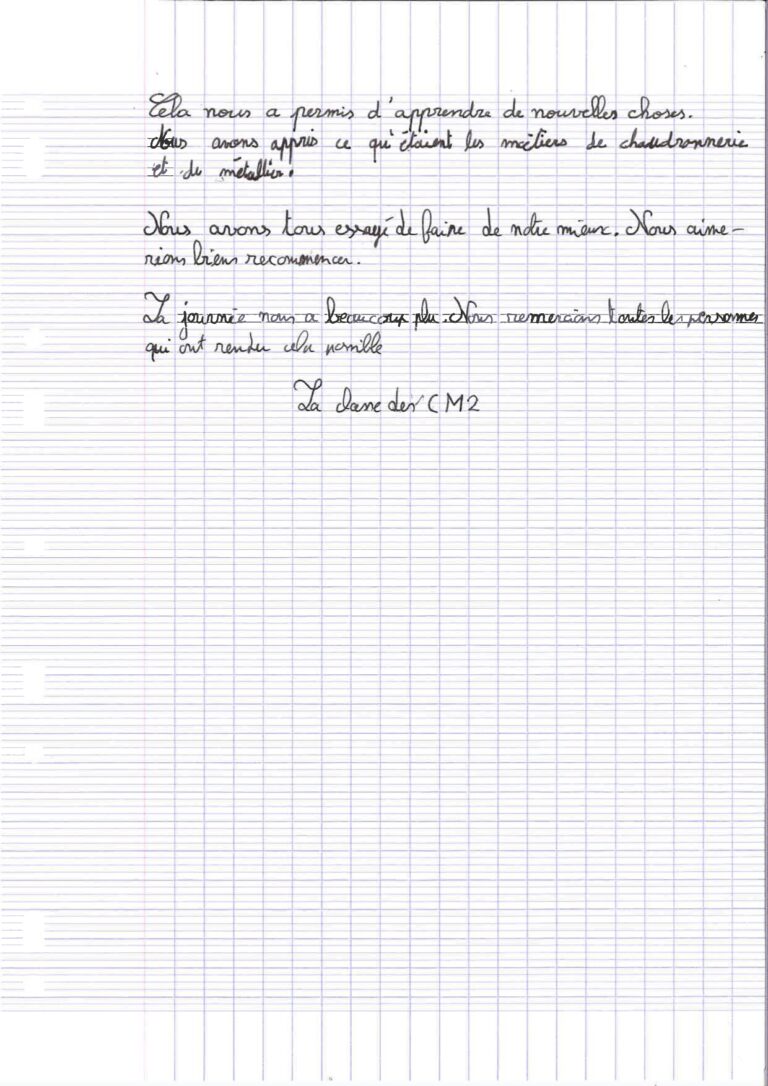 Cela nous a permis d'apprendre de nouvelles choses.
Nous avons appris ce qu'étaient les métiers de chaudronnerie
et de métallier.
Nous avons tous essayé de faire de notre mieux. Nous aime-
rions biens recommencer.
La journée nous a beaucoup plu. Nous remercions toutes les personnes
qui ont rendu cela possible
La classe des CM2